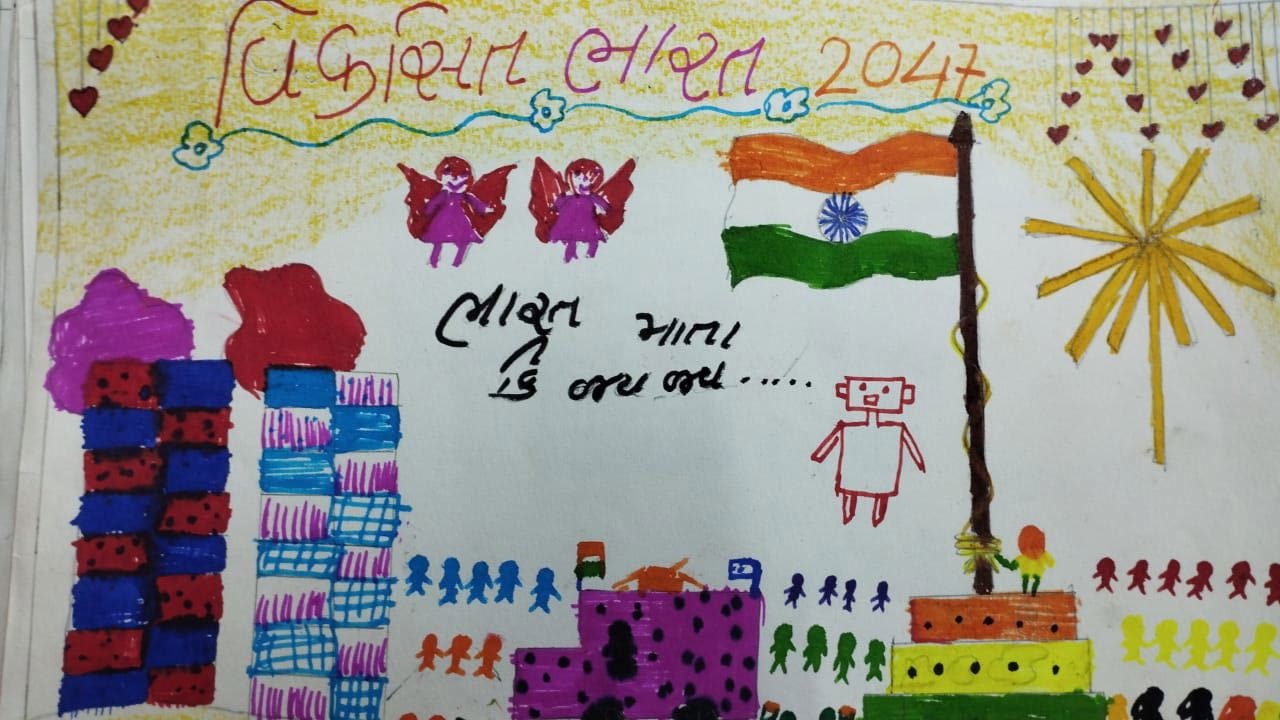 વિકસિત ભારત 2047
ભારત માતા
કિ જય જય .....